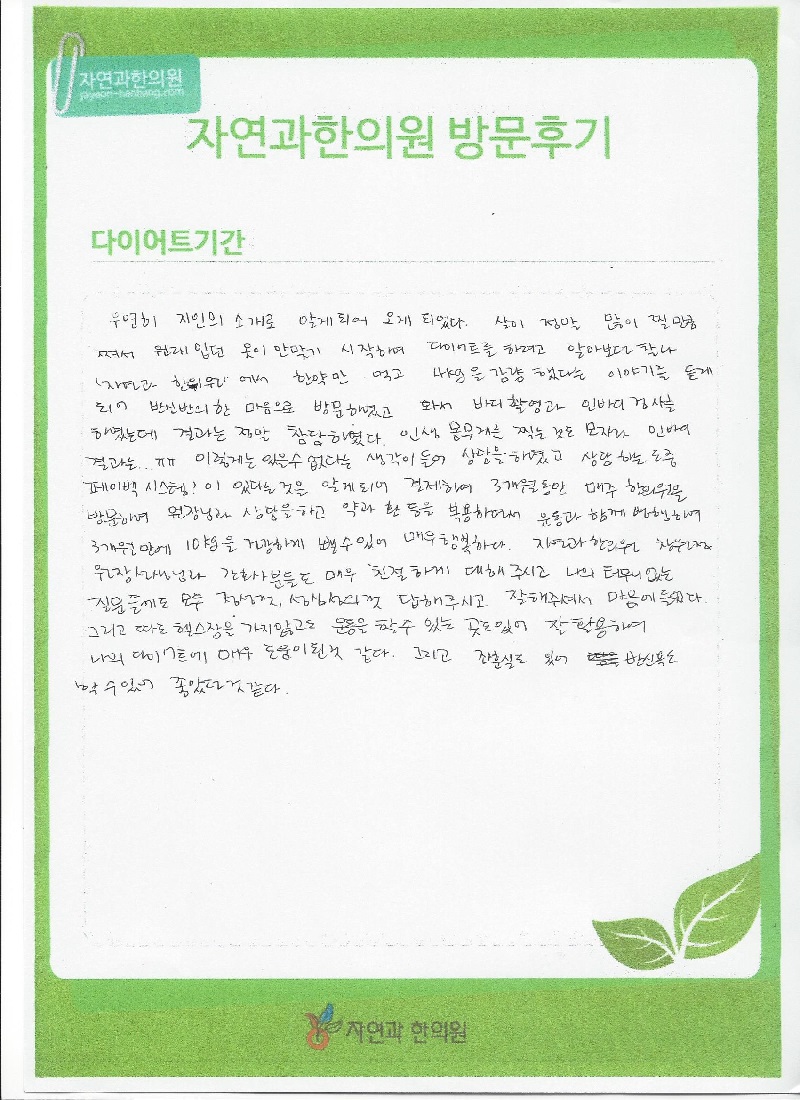 자연과한의원
jayeon-hanbang.com
자연과한의원 방문후기
다이어트기간
우연히 지인의 소개로 알게되어 오게 되었다. 살이 정말 많이 찔만큼
쪄서 원래 입던 옷이 안맞기 시작하여 다이어트를 하려고 알아보다 찰나
'자연과 한의원' 에서 한약만 먹고 감량했다는 이야기를 듣게
되어 반신반의한 마음으로 방문하였고 와서 바디촬영과 인바디검사를
하였는데 결과는 정말 참담하였다. 인생 몸무게를 찍는것도 모자라 인바디
결과는.. ㅠㅠ 이렇게는 있을수 없다는 생각이들어 상담을 하였고 상담하는 도중
페이백 시스템! 이 있다는 것을 알게되어 결제하여 3개월동안 매주 한의원을
방문하며 원장님과 상담을하고 약과 환 등을 복용하면서 운동과 함께 병행하며
3개월만에 10kg을 건강하게 뺄수있어 매우행복하다. 자연과한의원
원장선생님과 간호사분들도 매우 친절하게 대해주시고 나의 터무니없는
질문들에도 모두 성심성의껏 답해주시고 잘해주셔서 마음에들었다.
그리고 따로 헬스장을 가지않고도 운동을 할수 있는 곳도있어 잘 활용하여
나의 다이어트에 매우 도움이된것 같다. 그리고 좌훈실도 있어 반신욕도
할 수있어 좋았던것같다.
자연과 한의원